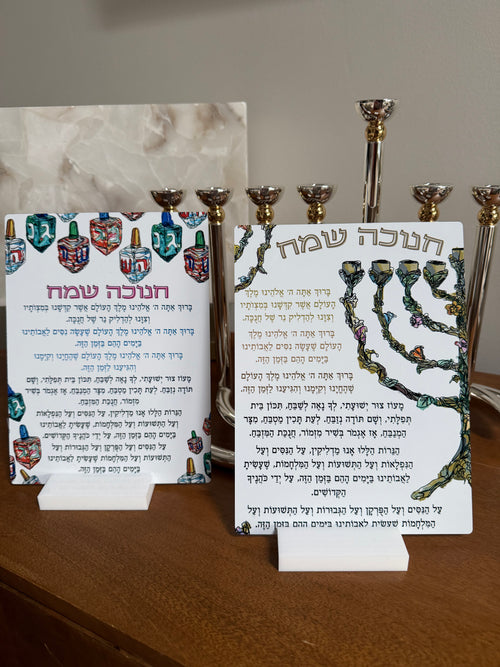 חנוכה שמח
בָּרוּךְ אַתָּה ה׳ אֱלֹהֵינוּ מֶלֶךְ הָעוֹלָם אֲשֶׁר קִדְּשָׁנוּ בְּמִצְוֹתָיו
וְצִוָּנוּ לְהַדְלִיק נֵר שֶׁל חֲנֻכָּה.
בָּרוּךְ אַתָּה ה׳ אֱלֹהֵינוּ מֶלֶךְ הָעוֹלָם שֶׁעָשָׂה נִסִּים לַאֲבוֹתֵינוּ
בַּיָּמִים הָהֵם בַּזְּמַן הַזֶּה.
בָּרוּךְ אַתָּה ה׳ אֱלֹהֵינוּ מֶלֶךְ הָעוֹלָם שֶׁהֶחֱיָנוּ וְקִיְּמָנוּ
וְהִגִּיעָנוּ לַזְּמַן הַזֶּה.
מָעוֹז צוּר יְשׁוּעָתִי, לְךָ נָאֶה לְשַׁבֵּחַ, תִּכּוֹן בֵּית תְּפִלָּתִי, וְשָׁם
תּוֹדָה נְזַבֵּחַ. לְעֵת תָּכִין מַטְבֵּחַ, מִצָּר הַמְנַבֵּחַ, אָז אֶגְמֹר בְּשִׁיר
מִזְמוֹר, חֲנֻכַּת הַמִּזְבֵּחַ.
הַנֵּרוֹת הַלָּלוּ אָנוּ מַדְלִיקִין, עַל הַנִּסִּים וְעַל הַנִּפְלָאוֹת
וְעַל הַתְּשׁוּעוֹת וְעַל הַמִּלְחָמוֹת, שֶׁעָשִׂיתָ לַאֲבוֹתֵינוּ
בַּיָּמִים הָהֵם בַּזְּמַן הַזֶּה, עַל יְדֵי כֹּהֲנֶיךָ הַקְּדוֹשִׁים.
עַל הַנִּסִּים וְעַל הַפֻּרְקָן וְעַל הַגְּבוּרוֹת
וְעַל הַתְּשׁוּעוֹת וְעַל הַמִּלְחָמוֹת שֶׁעָשִׂיתָ לַאֲבוֹתֵינוּ
בַּיָּמִים הָהֵם בַּזְּמַן הַזֶּה.
חנוכה שמח
בָּרוּךְ אַתָּה ה׳ אֱלֹהֵינוּ מֶלֶךְ
הָעוֹלָם אֲשֶׁר קִדְּשָׁנוּ בְּמִצְוֹתָיו
וְצִוָּנוּ לְהַדְלִיק נֵר שֶׁל חֲנֻכָּה.
בָּרוּךְ אַתָּה ה׳ אֱלֹהֵינוּ מֶלֶךְ
הָעוֹלָם שֶׁעָשָׂה נִסִּים לַאֲבוֹתֵינוּ
בַּיָּמִים הָהֵם בַּזְּמַן הַזֶּה.
בָּרוּךְ אַתָּה ה׳ אֱלֹהֵינוּ מֶלֶךְ הָעוֹלָם
שֶׁהֶחֱיָנוּ וְקִיְּמָנוּ וְהִגִּיעָנוּ לַזְּמַן הַזֶּה.
מָעוֹז צוּר יְשׁוּעָתִי, לְךָ נָאֶה לְשַׁבֵּחַ, תִּכּוֹן בֵּית
תְּפִלָּתִי, וְשָׁם תּוֹדָה נְזַבֵּחַ. לְעֵת תָּכִין מַטְבֵּחַ, מִצָּר
הַמְנַבֵּחַ, אָז אֶגְמֹר בְּשִׁיר מִזְמוֹר, חֲנֻכַּת הַמִּזְבֵּחַ.
הַנֵּרוֹת הַלָּלוּ אָנוּ מַדְלִיקִין, עַל הַנִּסִּים וְעַל
הַנִּפְלָאוֹת וְעַל הַתְּשׁוּעוֹת וְעַל הַמִּלְחָמוֹת, שֶׁעָשִׂיתָ
לַאֲבוֹתֵינוּ בַּיָּמִים הָהֵם בַּזְּמַן הַזֶּה, עַל יְדֵי כֹּהֲנֶיךָ
הַקְּדוֹשִׁים.
עַל הַנִּסִּים וְעַל הַפֻּרְקָן וְעַל הַגְּבוּרוֹת וְעַל הַתְּשׁוּעוֹת וְעַל
הַמִּלְחָמוֹת שֶׁעָשִׂיתָ לַאֲבוֹתֵינוּ בַּיָּמִים הָהֵם בַּזְּמַן הַזֶּה.